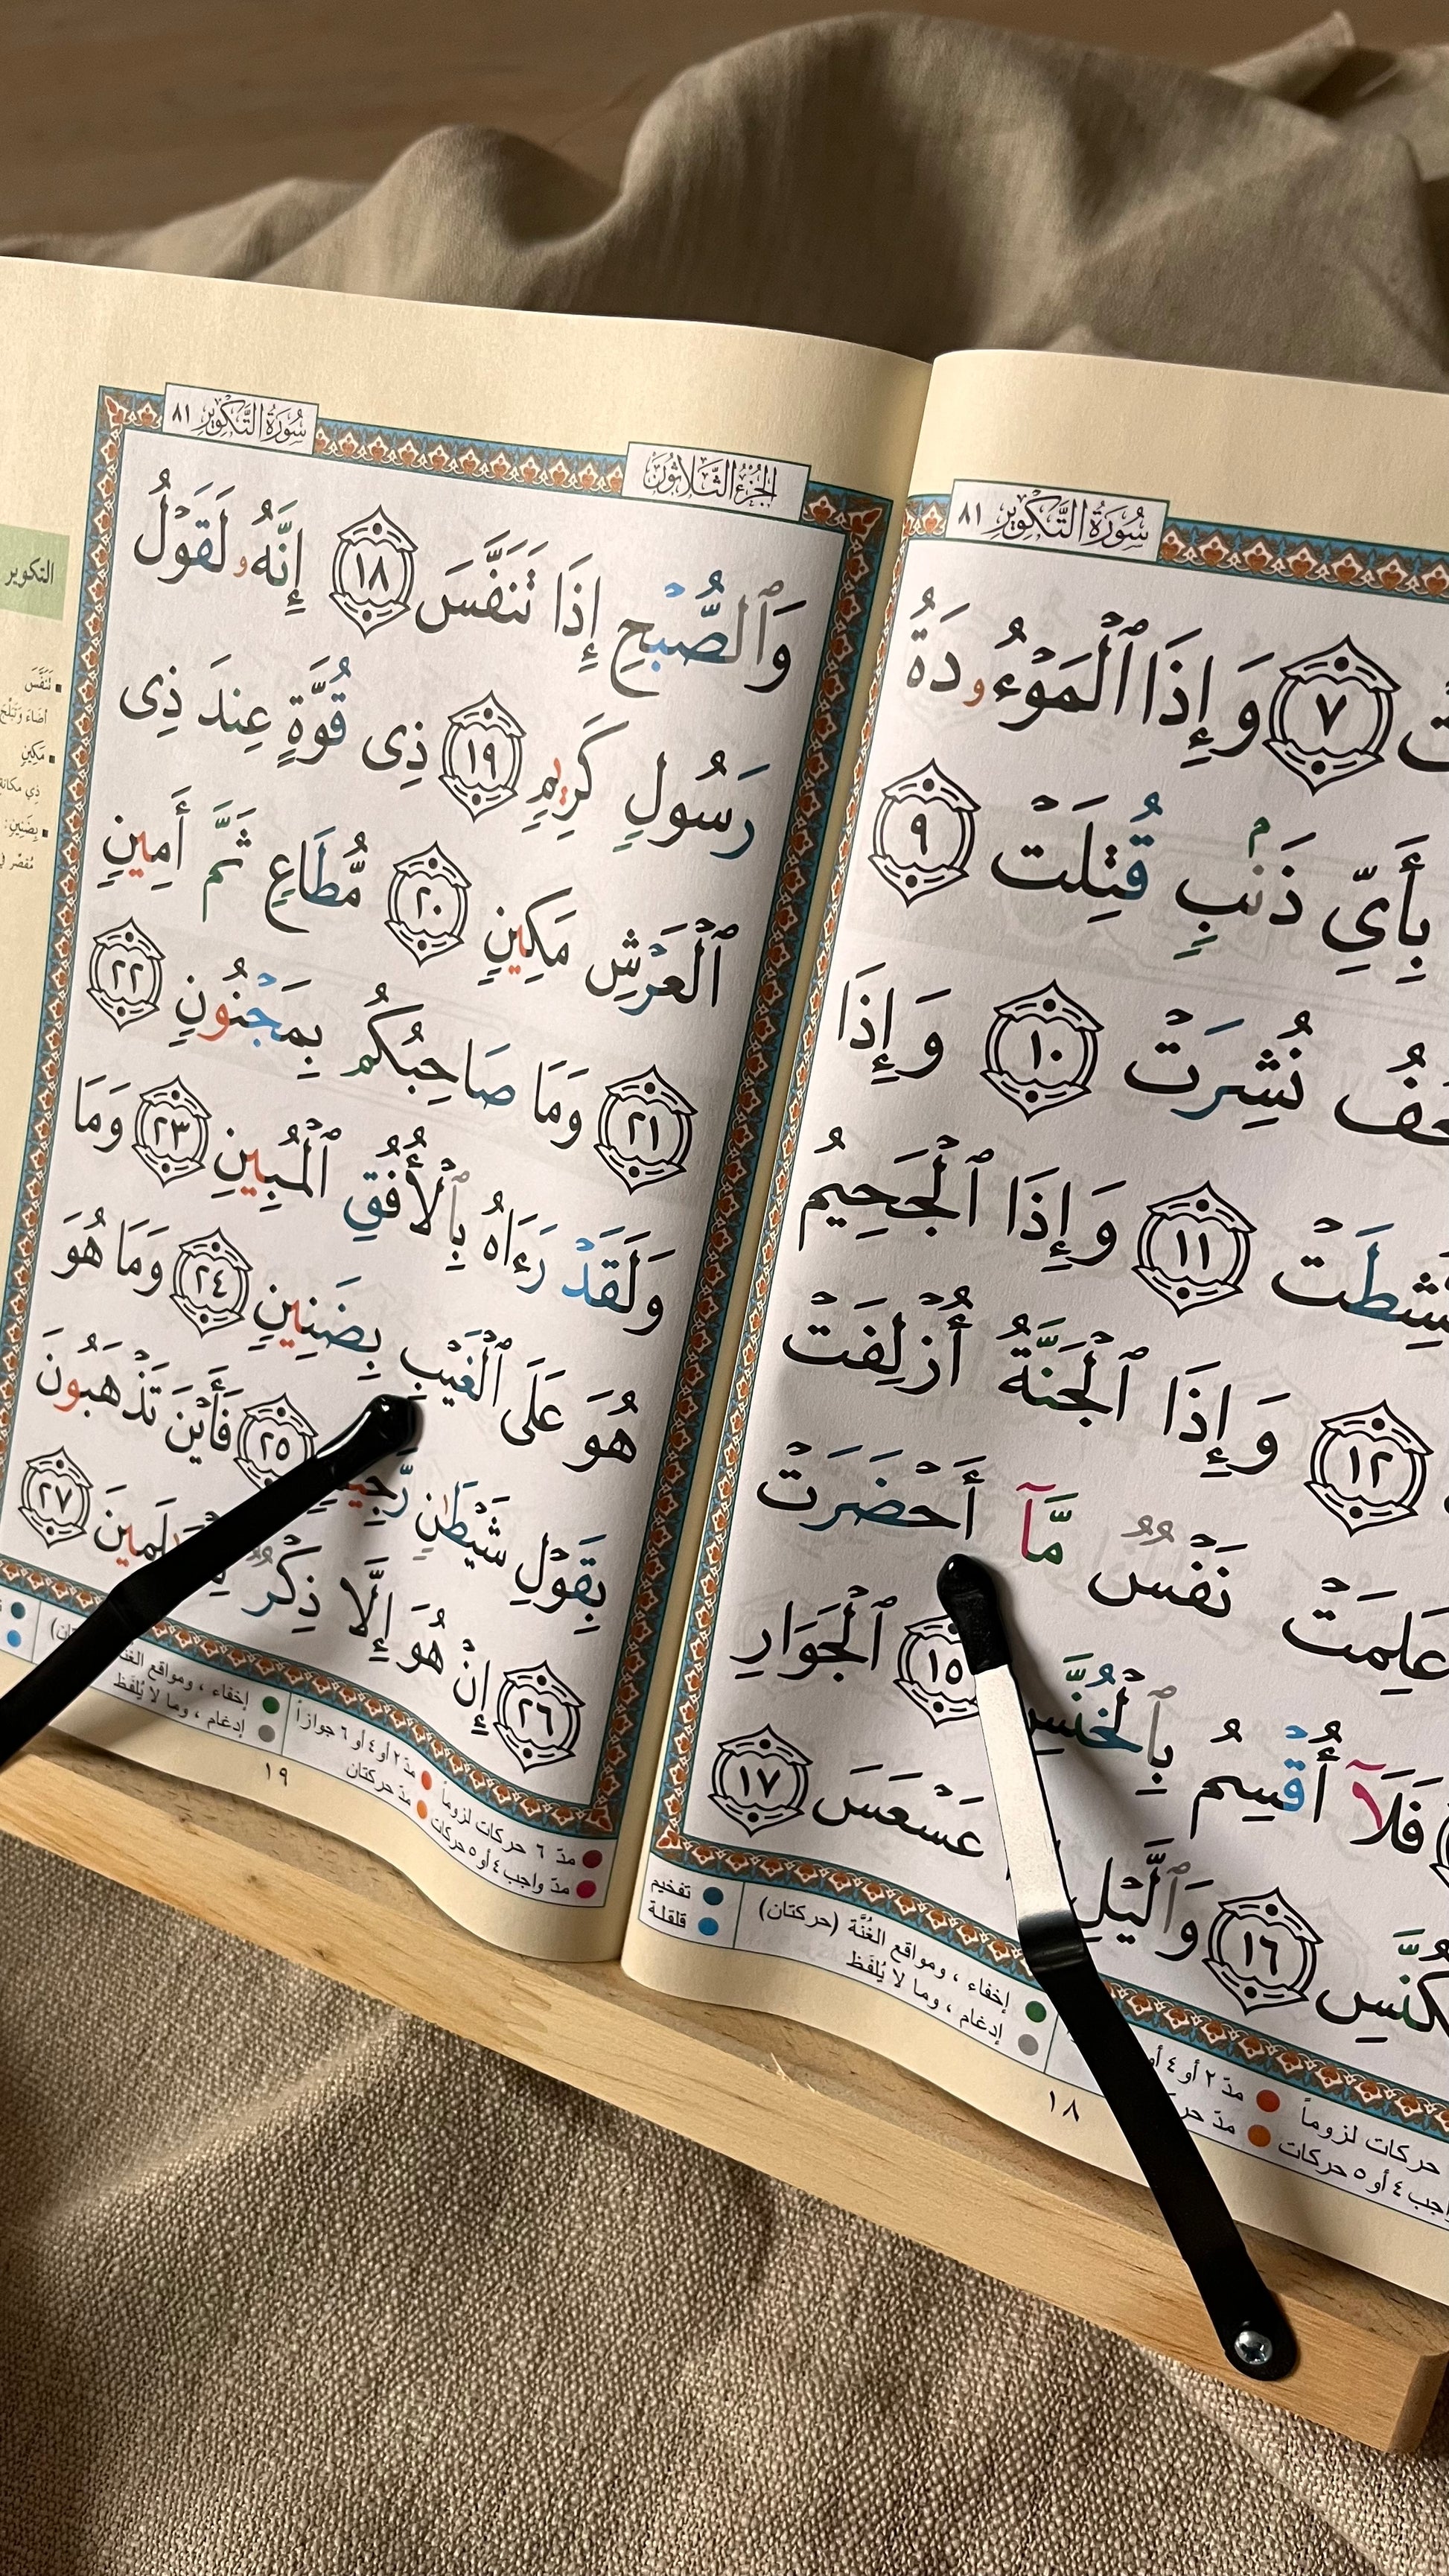 سُورَةُ التَّكْوِيرِ ٨١
٧ وَإِذَا ٱلْمَوْءُۥدَةُ
بِأَيِّ ذَنۢبٍ قُتِلَتْ ٩
نُشِرَتْ ١٠ وَإِذَا
١١ وَإِذَا ٱلْجَحِيمُ
١٢ وَإِذَا ٱلْجَنَّةُ أُزْلِفَتْ
عَلِمَتْ نَفْسٌ مَّآ أَحْضَرَتْ
فَلَآ أُقْسِمُ بِٱلْخُنَّسِ ١٥ ٱلْجَوَارِ
١٦ وَٱلَّيْلِ عَسْعَسَ ١٧
حركات لزوماً مدّ ٢ أو ٤ أو
٤ أو ٥ حركات مدّ
إخفاء ، ومواقع الغُنَّة (حركتان)
إدغام ، وما لا يُلفَظ
تفخيم
قلقلة
١٨
الجُزْءُ الثَّلَاثُونَ
سُورَةُ التَّكْوِيرِ ٨١
وَٱلصُّبْحِ إِذَا تَنَفَّسَ ١٨ إِنَّهُۥ لَقَوْلُ
رَسُولٍ كَرِيمٍ ١٩ ذِى قُوَّةٍ عِندَ ذِى
ٱلْعَرْشِ مَكِينٍ ٢٠ مُّطَاعٍ ثَمَّ أَمِينٍ
٢١ وَمَا صَاحِبُكُم بِمَجْنُونٍ ٢٢
وَلَقَدْ رَءَاهُ بِٱلْأُفُقِ ٱلْمُبِينِ ٢٣ وَمَا
هُوَ عَلَى ٱلْغَيْبِ بِضَنِينٍ ٢٤ وَمَا هُوَ
بِقَوْلِ شَيْطَٰنٍ رَّجِيمٍ ٢٥ فَأَيْنَ تَذْهَبُونَ
٢٦ إِنْ هُوَ إِلَّا ذِكْرٌ ٢٧
مدّ ٦ حركات لزوماً مدّ ٢ أو ٤ أو ٦ جوازاً
مدّ واجب ٤ أو ٥ حركات مدّ حركتان
إخفاء ، ومواقع الغنة
إدغام ، وما لا يُلفَظ
١٩
التكوير
تَنَفَّسَ
أضاء وتبلّج
مَكِينٍ
ذي مكانة
بِضَنِينٍ: